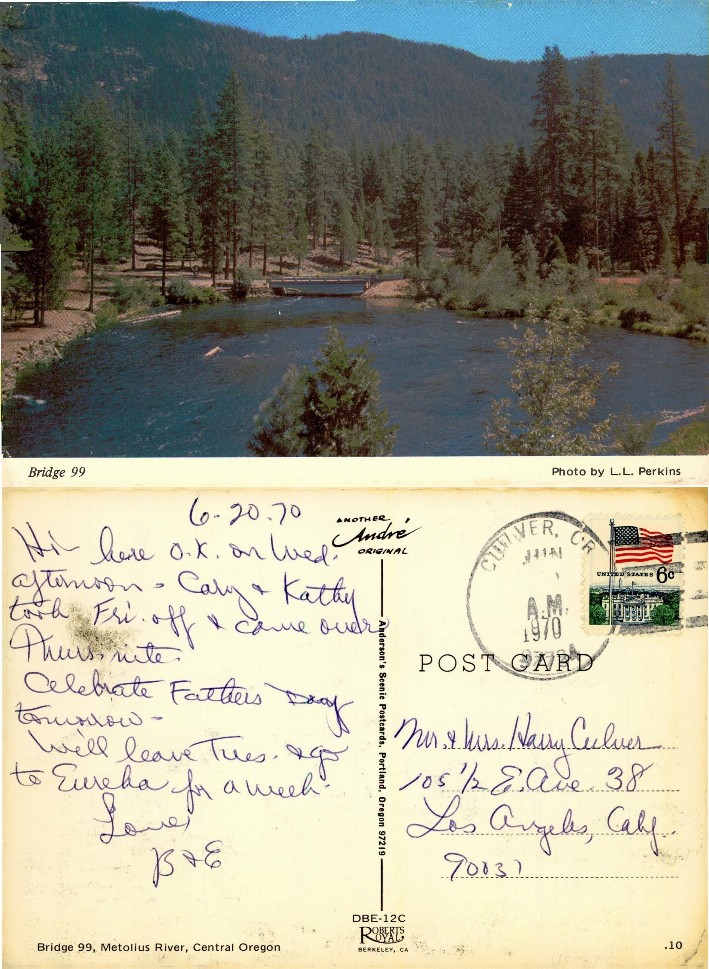 Bridge 99
Photo by L.L. Perkins
6-20-70
Hi- here o.k. on Wed.
afternoon - Cary & Kathy
took Fri. off & come over
Thurs. nite.
Celebrate Fathers Day
tomorrow-
We'll leave Tues. & go
to Eureka for a week.
Love,
B & E
ANOTHER
André
ORIGINAL
Anderson's Scenic Postcards, Portland, Oregon 97219
CULVER, OR
JUN
A.M.
1970
UNITED STATES 6c
POST CARD
Mr. & Mrs. Harry Culver
105 1/2 E. Ave. 38
Los Angeles, Calif.
90031
DBE-12C
ROBERTS
ROYAL
BERKELEY, CA
Bridge 99, Metolius River, Central Oregon
.10